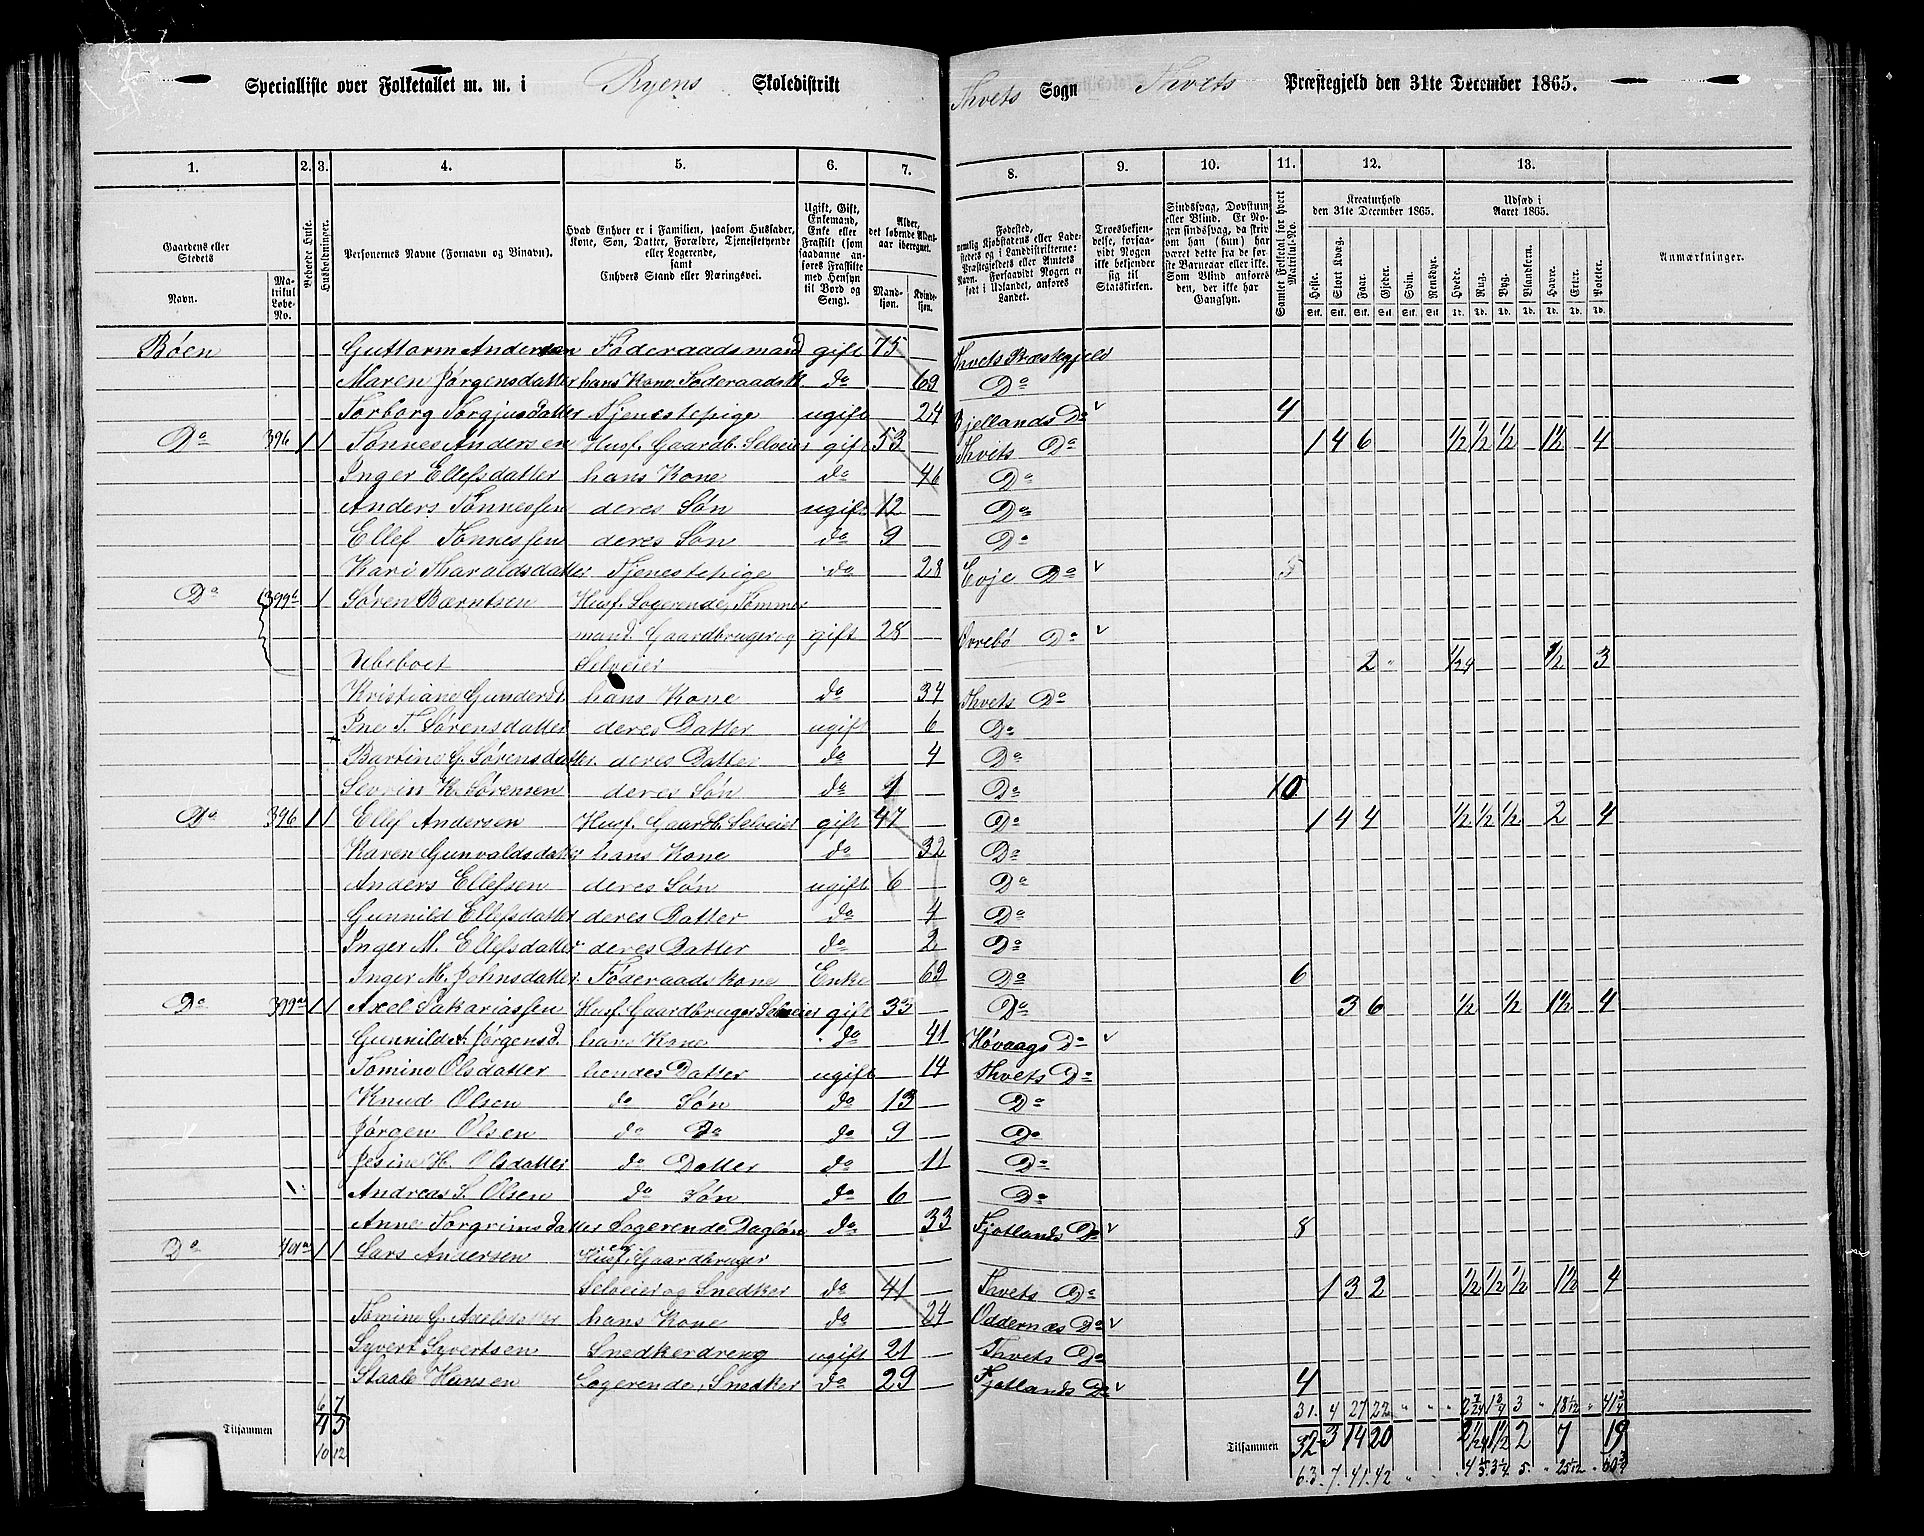 Specialliste over Folketallet m. m. i Ryens Skoledistrikt Thvets Sogn Thvets Præstegjeld den 31te December 1865.
1. 2. 3. 4. 5. 6. 7. 8. 9. 10. 11. 12. 13.
Gaardens eller Stedets Navn. Matrikul Løbe-No. Bebøede Huse. Husholdninger. Personernes Navne (Fornavn og Binavn). Hvad Enhver er i Familien, saasom Husfader, Kone, Søn, Datter, Forældre, Tjenestetyende eller Logerende, samt Enhvers Stand eller Næringsvei. Ugift, Gift, Enkemand, Enke eller Fraskilt (som saadanne anføres Fraskilte med Hensyn til Bord og Seng). Alder, det løbende Alders-aar iberegnet. Mandkjøn. Kvindekjøn. Fødested, Troesbekjendelse, forsaavidt Nogen ikke bekjender sig til Statskirken. Samlet Folketal for hvert Matrikul-No. Kreaturhold den 31te December 1865. Heste. Stort Kvæg. Faar. Gjeder. Svin. Rensdyr. Udsæd i Aaret 1865. Hvede. Rug. Byg. Blandkorn. Havre. Erter. Poteter. Anmærkninger.
Bøen Guttorm Andersen Føderaadsmand gift 75 Thvets Præstegjeld
Maren Jørgensdatter hans Kone Føderaadsk do 69 Do
Torborg Torgjusdatter Tjenestepige ugift 24 Bjellands Do 4
Do 396 1 1 Tønnes Andersen Husf. Gaardb. Selveier gift 53 Thvets Do 1 4 6 ½ ½ ½ 1½ 4
Inger Ellefsdatter hans Kone do 46 Do
Anders Tønnessen deres Søn ugift 12 Do
Ellef Tønnessen deres Søn do 9 Do
Kari Tharaldsdatter Tjenestepige do 28 Evje Do 5
Do 399b 1 Søren Bærntsen Husf. Logerende, Tømmer
mand. Gaardbruger og gift 28 Øvrebø Do
Ubeboet Selveier 2 1/24 ½ 3
Kristiane Gundersd. hans Kone do 34 Thvets Do
Ine T. Sørensdatter deres Datter ugift 6 Do
Bartine G. Sørensdatter deres Datter do 4 Do
Sevrin K. Sørensen deres Søn do 1 Do 10
Do 396 1 1 Ellef Andersen Husf. Gaardb. Selveier gift 47 Do 1 4 4 ½ ½ ½ 2 4
Karen Gunvaldsdatter hans Kone do 32 Do
Anders Ellefsen deres Søn ugift 6 Do
Gunnild Ellefsdatter deres Datter do 4 Do
Inger M. Ellefsdatter deres Datter do 2 Do
Inger M. Johnsdatter Føderaadskone Enke 69 Do 6
Do 399a 1 1 Axel Sakariassen Husf. Gaardbruger Selveier gift 33 Do 3 6 ½ ½ 1½ 4
Gunnild A. Jørgensd. hans Kone do 41 Høvaags Do
Tomine Olsdatter hendes Datter ugift 14 Thvets Do
Knud Olsen do Søn do 13 Do
Jørgen Olsen do Do do 9 Do
Jesine H. Olsdatter do Datter do 11 Do
Andreas S. Olsen do Søn do 6 Do
Anne Torgrimsdatter Logerende Dagløn do 33 Fjotlands Do 8
Do 401a 1 1 Lars Andersen Husf. Gaardbruger
Selveier og Snedker do 41 Thvets Do 1 3 2 ½ ½ ½ 1½ 4
Tomine G. Axelsdatter hans Kone do 24 Oddernæs Do
Syvert Syvertsen Snedkerdreng ugift 21 Thvets Do
Staale Hansen Logerende, Snedker do 29 Fjotlands Do 4
6 7 31. 4 27 22
Tilsammen 4 5 Tilsammen 32 3 14 20 2 7 19
10 12 63. 7. 41. 42